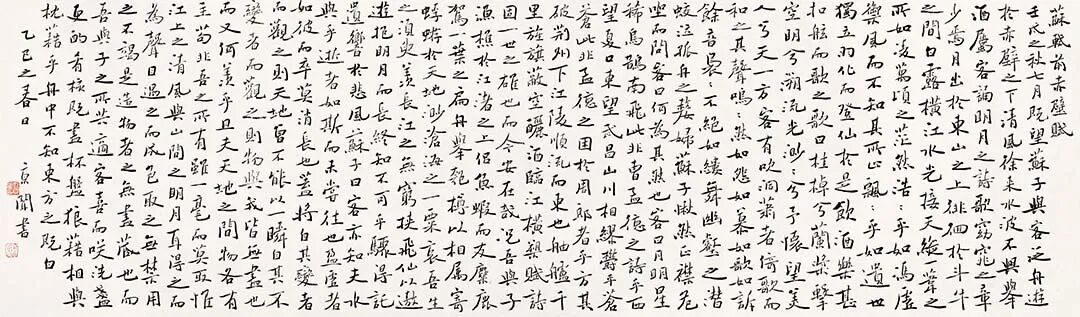 蘇軾前赤壁賦
壬戌之秋七月既望蘇子與客泛舟遊
於赤壁之下清風徐來水波不興舉
酒屬客誦明月之詩歌窈窕之章
少焉月出於東山之上徘徊於斗牛
之間白露橫江水光接天縱一葦之
所如凌萬頃之茫然浩々乎如馮虛
禦風而不知其所止飄々乎如遺世
獨立羽化而登仙於是飲酒樂甚
扣舷而歌之歌曰桂棹兮蘭槳擊
空明兮溯流光渺々兮予懷望美
人兮天一方客有吹洞簫者倚歌而
和之其聲嗚々然如怨如慕如泣如訴
餘音裊々不絕如縷舞幽壑之潛
蛟泣孤舟之嫠婦蘇子愀然正襟危
坐而問客曰何為其然也客曰月明星
稀烏鵲南飛此非曹孟德之詩乎西
望夏口東望武昌山川相繆鬱乎蒼
蒼此非孟德之困於周郎者乎方其
破荊州下江陵順流而東也舳艫千
里旌旗蔽空釃酒臨江橫槊賦詩
固一世之雄也而今安在哉況吾與子
漁樵於江渚之上侶魚蝦而友麋鹿
駕一葉之扁舟舉匏樽以相屬寄
蜉蝣於天地渺滄海之一粟哀吾生
之須臾羨長江之無窮挾飛仙以遨
遊抱明月而長終知不可乎驟得託
遺響於悲風蘇子曰客亦知夫水
與月乎逝者如斯而未嘗往也盈虛者
如彼而卒莫消長也蓋將自其變者
而觀之則天地曾不能以一瞬自其不
變者而觀之則物與我皆無盡也
而又何羨乎且夫天地之間物各有
主苟非吾之所有雖一毫而莫取惟
江上之清風與山間之明月耳得之而
為聲目遇之而成色取之無禁用
之不竭是造物者之無盡藏也而
吾與子之所共適客喜而笑洗盞
更酌肴核既盡杯盤狼藉相與
枕藉乎舟中不知東方之既白
乙巳之春日 書